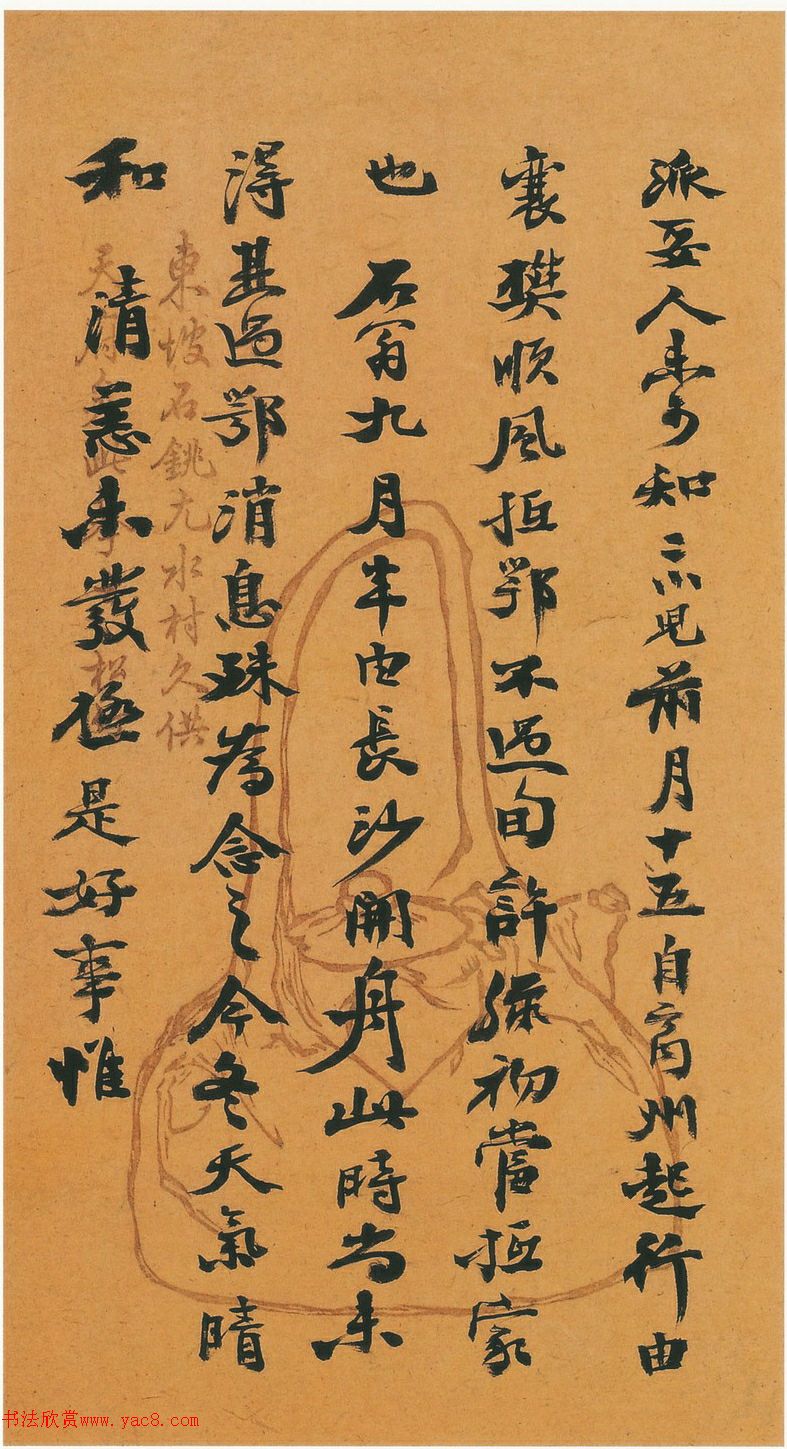 派妥人未可知二小兒前月十五自商州起行由
襄樊順風抵鄂不過旬許臘初當抵家
也 石翁九月半由長沙開舟此時尚未
得其過鄂消息殊為念之今冬天氣晴
和 清恙未發極是好事惟
東坡石銚尤水村久供
书法欣赏www.yac8.com